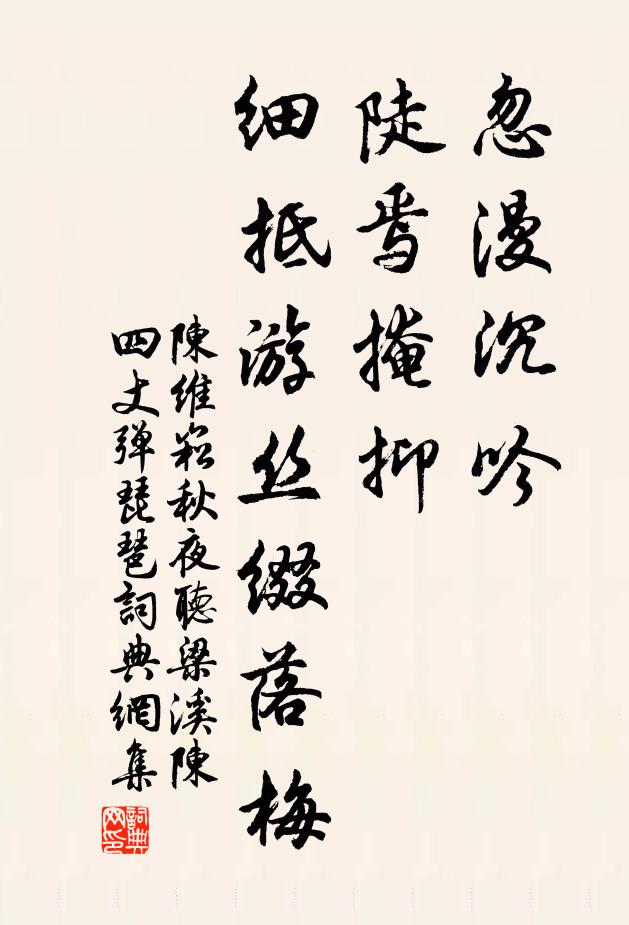 忽漫沉吟
陡焉掩抑
细抵游丝缀落梅
陳維崧秋夜聽梁溪陳
四丈弹琵琶詞典網集
詞典
网印